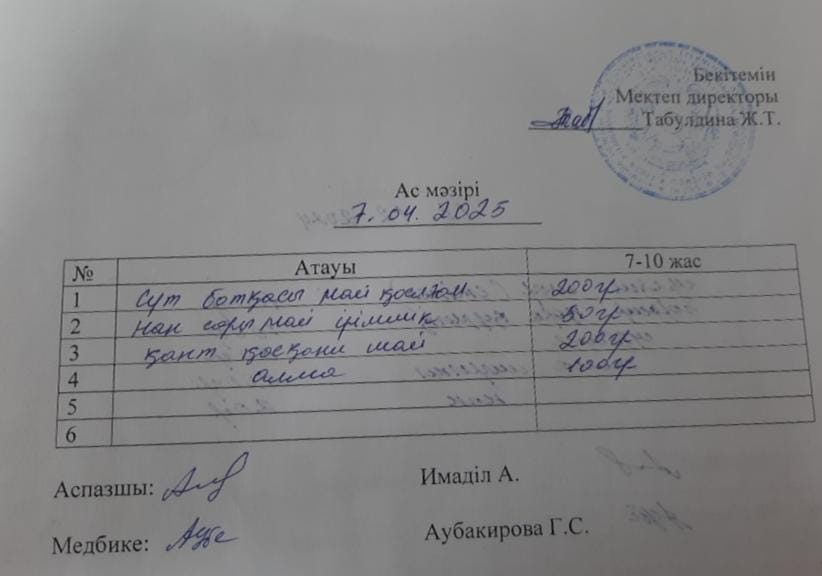 Бекітемін
Мектеп директоры
Табулдина Ж.Т.
Ас мәзірі
7.04.2025
№ Атауы 7-10 жас
1 Сүт ботқасы май қосылған 200гр
2 Нан сары май ірімшік 50гр
3 қант қосқан шай 200гр
4 алма 100гр
5
6
Аспазшы: Имаділ А.
Медбике: Аубакирова Г.С.